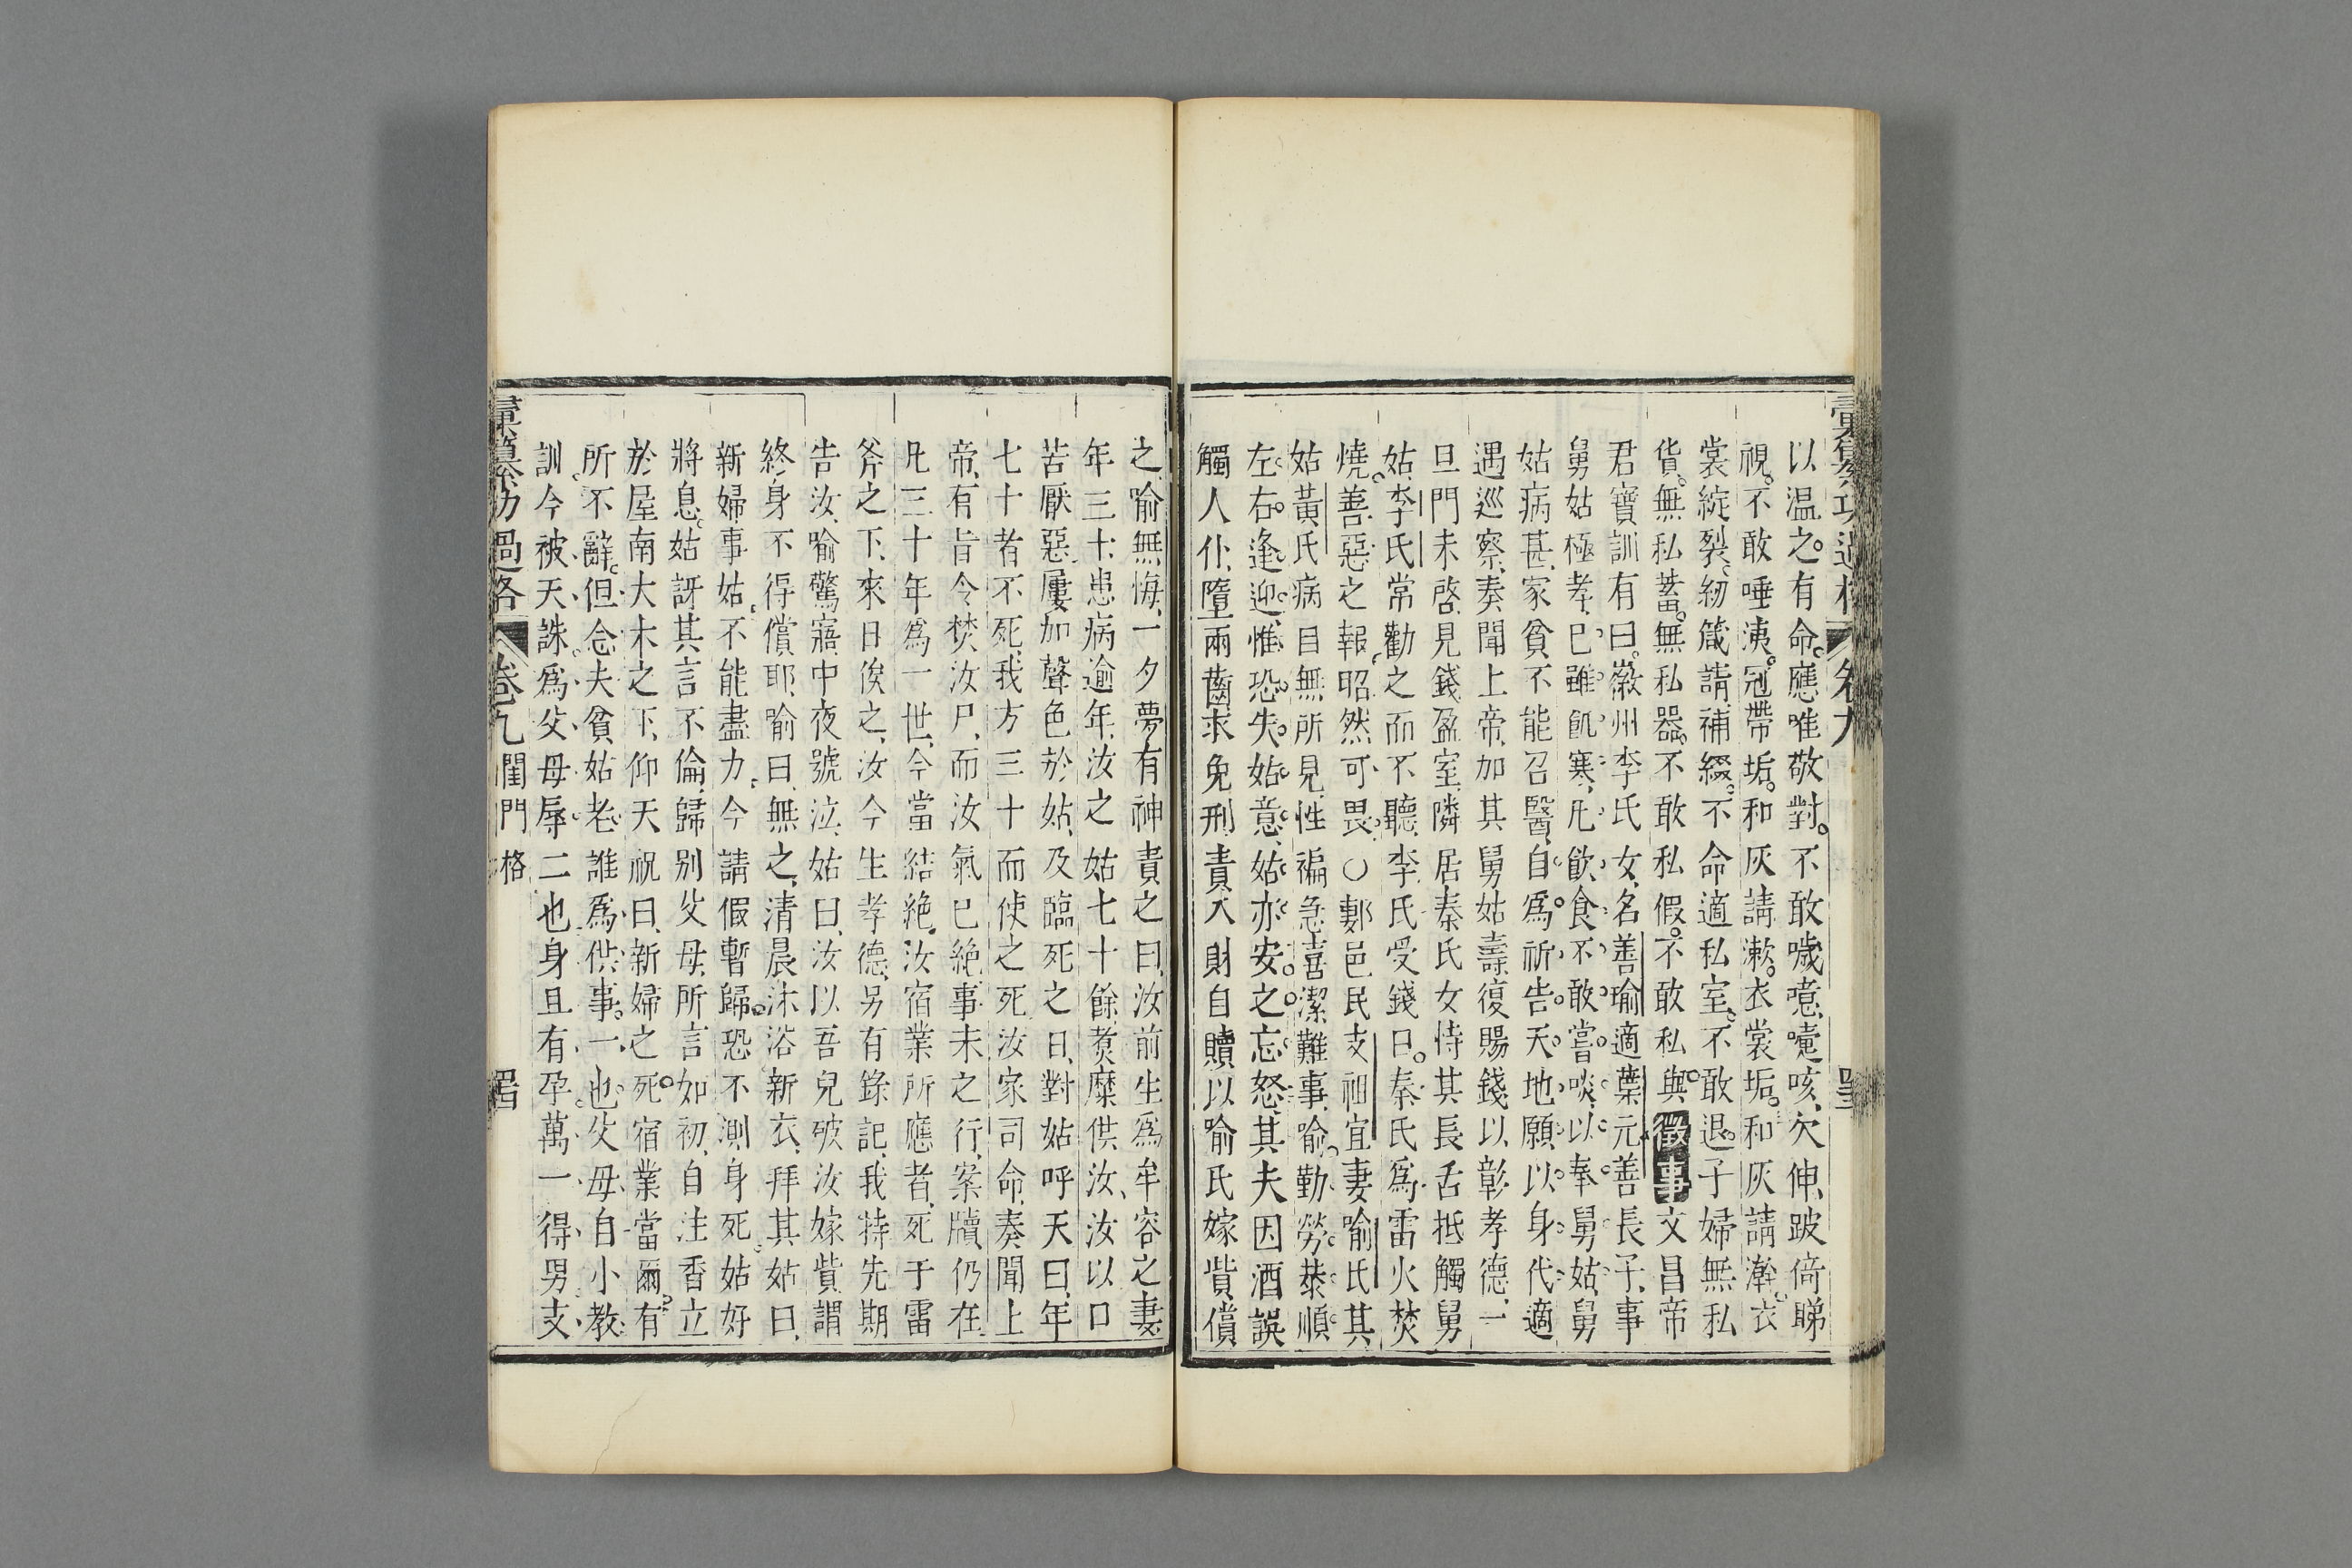 彙纂功過格 卷九
以温之。有命。應唯敬對。不敢噦噫嚏咳、欠伸、跛倚睇
視。不敢唾洟。冠帶垢。和灰請漱。衣裳垢。和灰請澣。衣
裳綻裂、紉箴請補綴。不命適私室。不敢退。子婦無私
貨。無私蓄。無私器。不敢私假。不敢私與。徵事文昌帝
君寶訓有曰。徽州李氏女、名善瑜適葉元善長子、事
舅姑極孝、巳雖飢寒、凡飲食不敢嘗啖、以奉舅姑、舅
姑病甚、家貧不能召醫、自爲祈告天地願以身代適
遇巡察、奏聞上帝、加其舅姑壽、復賜錢以彰孝德、一
旦門未啓、見錢盈室、隣居秦氏女恃其長舌抵觸舅
姑、李氏常勸之而不聽、李氏受錢日。秦氏爲雷火焚
燒。善惡之報、昭然可畏、○鄴邑民支祖宜妻喻氏其
姑黃氏病目無所見、性褊急喜潔難事、喻勤勞恭順
左右逢迎、惟恐失姑意、姑亦安之忘怒、其夫因酒誤
觸人仆、墮兩齒求免刑責、入財自贖以喻氏嫁貲償
之、喻無悔、一夕夢有神責之曰、汝前生爲牟容之妻
年三十、患病逾年、汝之姑七十餘煑糜供汝、汝以口
苦厭惡、屢加聲色於姑、及臨死之日、對姑呼天曰、年
七十者不死、我方三十而使之死、汝家司命、奏聞上
帝、有旨令焚汝尸、而汝氣巳絶、事未之行、案牘仍在
凡三十年爲一世、今當結絶、汝宿業所應者、死于雷
斧之下、來日俟之、汝今生孝德、另有錄記、我特先期
告汝、喻驚寤、中夜號泣、姑曰、汝以吾兒破汝嫁貲謂
終身不得償耶、喻曰、無之、清晨沐浴新衣、拜其姑曰、
新婦事姑、不能盡力、今請假暫歸。恐不測身死。姑好
將息。姑訝其言不倫、歸別父母、所言如初、自注香立
於屋南大木之下、仰天祝曰、新婦之死。宿業當爾。有
所不辭。但念夫貧姑老。誰爲供事。一也。父母自小教
訓。今被天誅。爲父母辱。二也身且有孕萬一得男支
彙纂功過格 卷九閨門 格